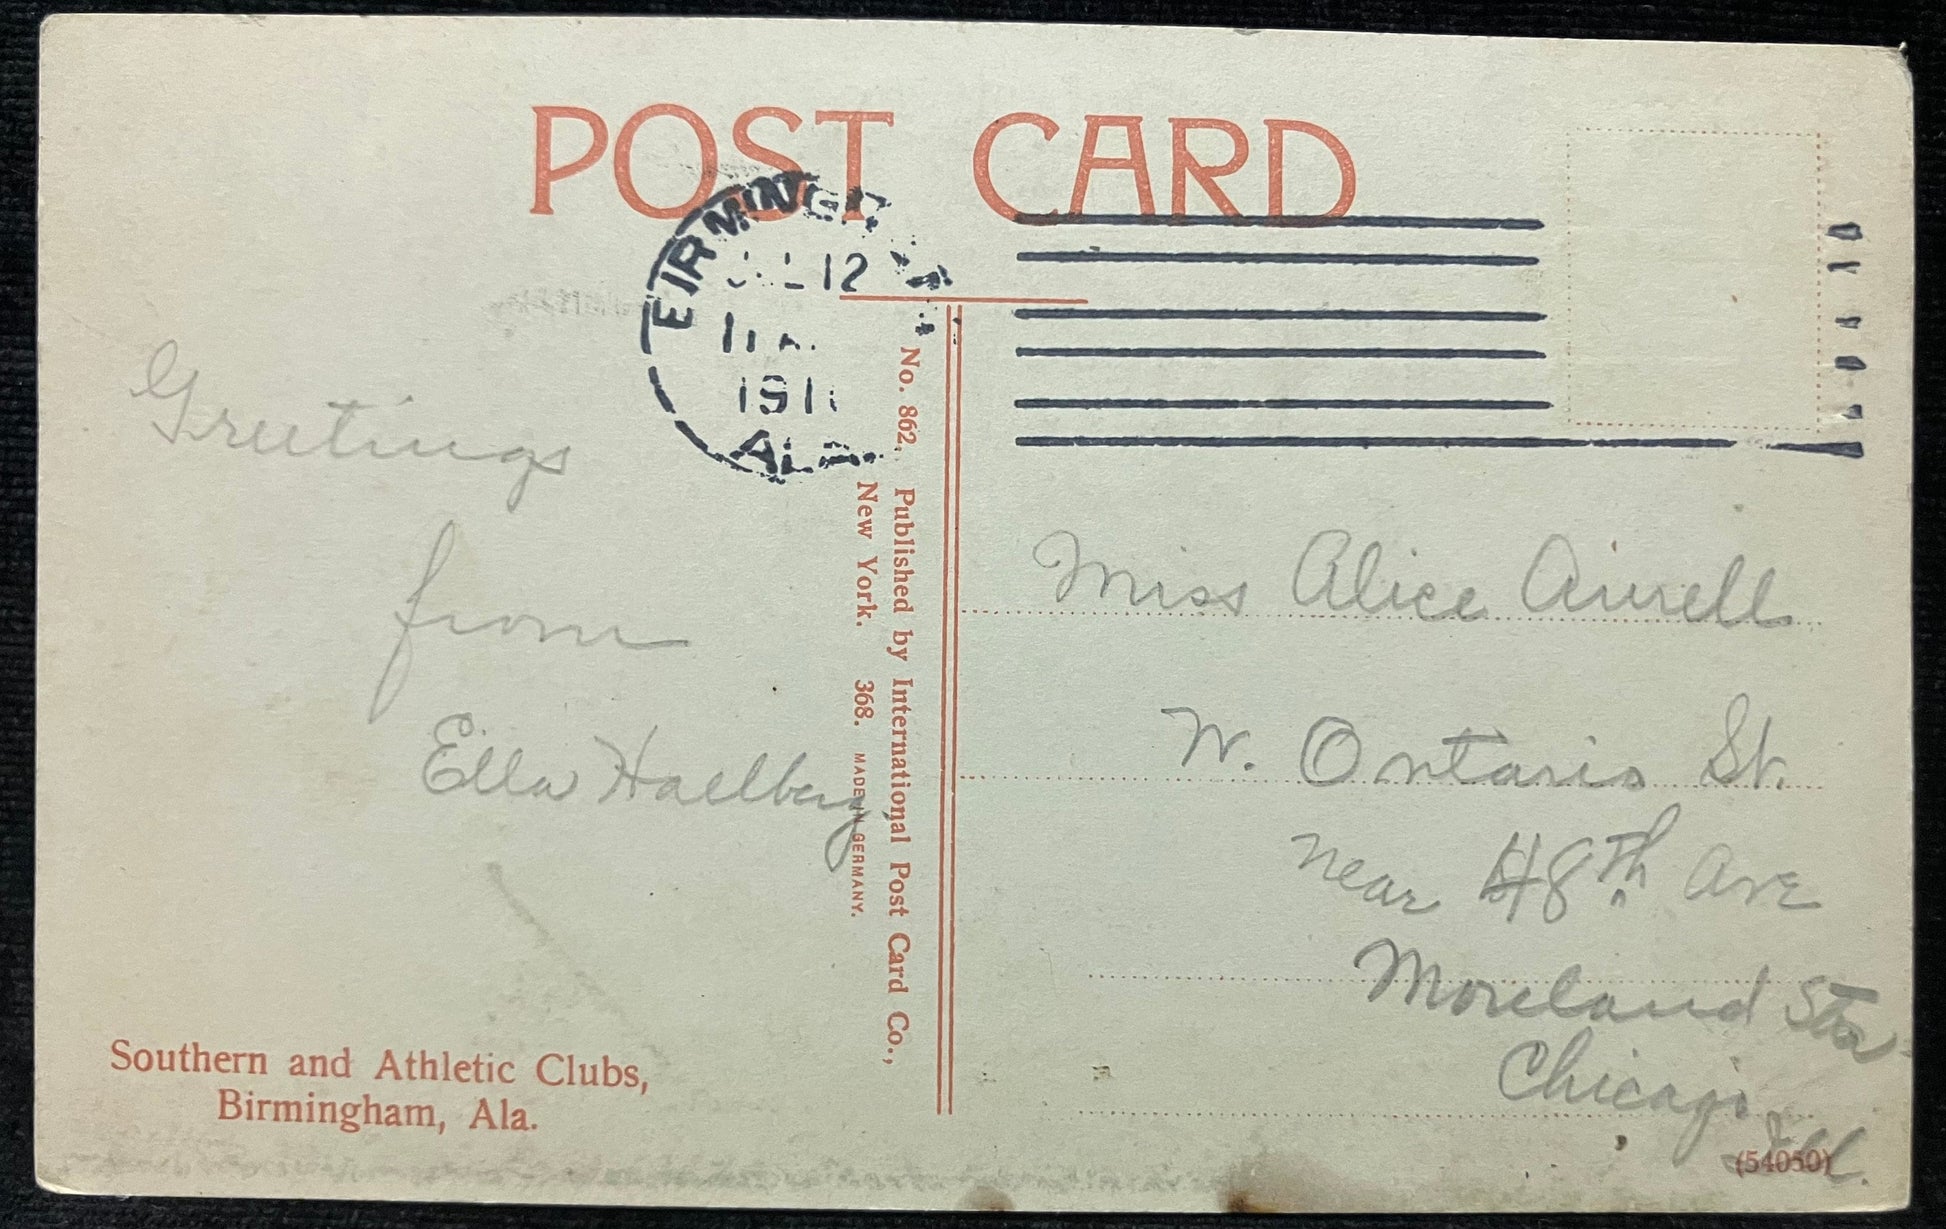 POST CARD
BIRMINGHAM
12
191
ALA.
Greetings
from
Ella Hallberg
No. 862. Published by International Post Card Co.,
New York. 368. MADE IN GERMANY.
Miss Alice
W. Ontario St.
near 48th Ave
Moreland Sta
Chicago
Ill.
Southern and Athletic Clubs,
Birmingham, Ala.
(54050)